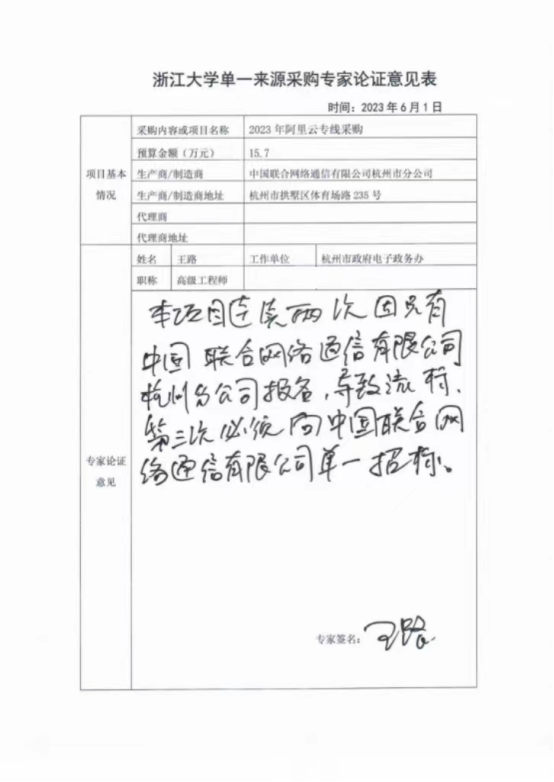 浙江大学单一来源采购专家论证意见表
时间：2023 年 6 月 1 日
项目基本情况
采购内容或项目名称 2023 年阿里云专线采购
预算金额（万元） 15.7
生产商/制造商 中国联合网络通信有限公司杭州市分公司
生产商/制造商地址 杭州市拱墅区体育场路 235 号
代理商
代理商地址
专家论证意见
姓名 王路 工作单位 杭州市政府电子政务办
职称 高级工程师
本项目连续两次因只有
中国联合网络通信有限公司
杭州分公司报名，导致流标、
第三次必须向中国联合网
络通信有限公司单一招标。
专家签名：王路